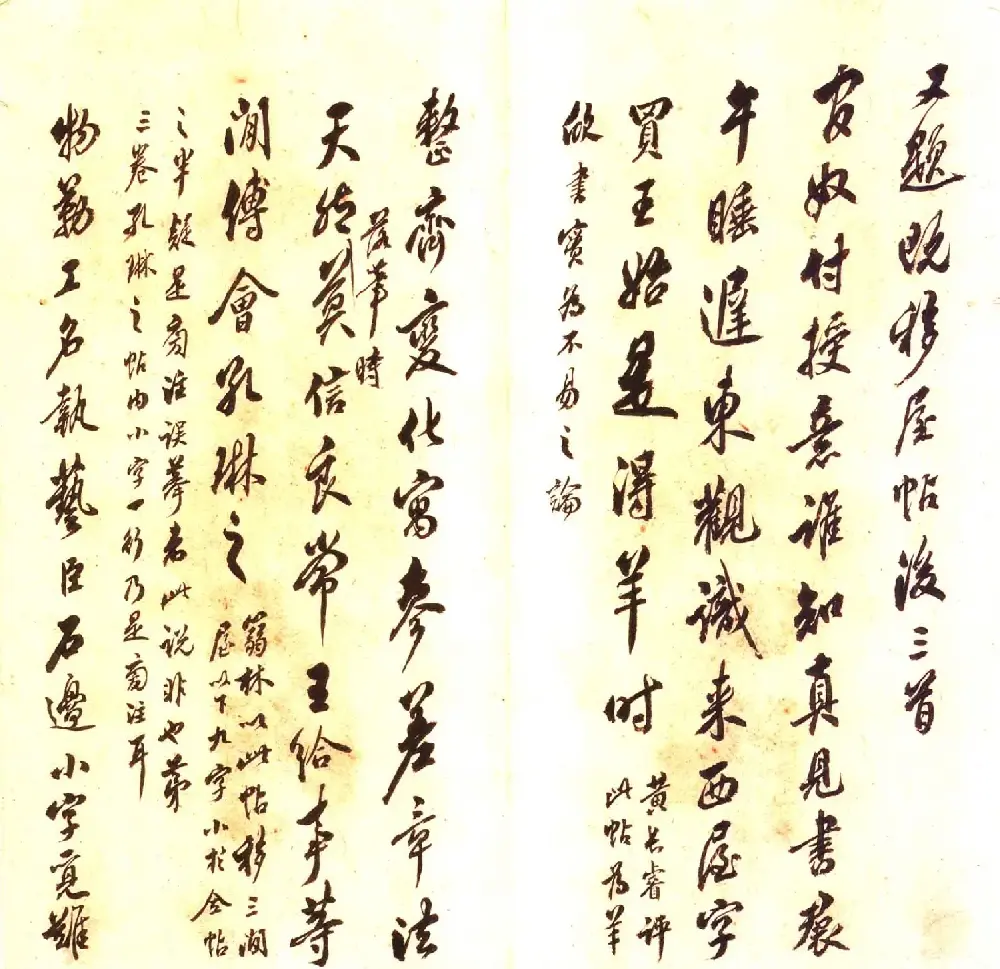 又題既移屋帖後三首
官奴付授意誰知真見書裠
午睡遲東觀識来西屋字
買王始是得羊时
黄长睿评
此帖为羊
欣書實為不易之論
整齊變化寓參差章法
天然落筆時
莫信良常王給事等
閒傅會孔琳之
蒻林以此帖移三閒
屋以下九字小於全帖
之半疑是旁注誤摹者此説非也苐
三卷孔琳之帖内小字一行乃是旁注耳
物勒工名執藝臣石邊小字竟雖